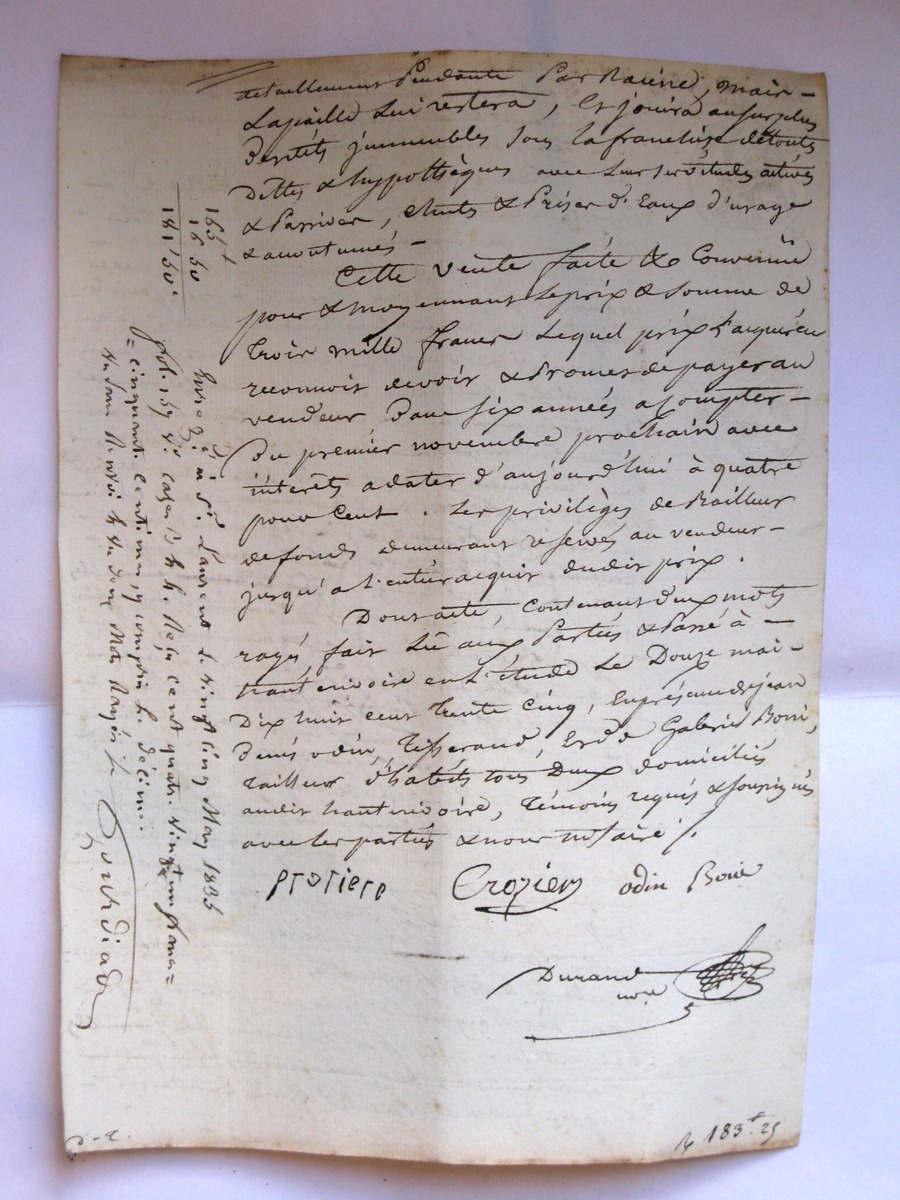 actuellement Pendante Par Racine, mais
La paille lui restera, Et jouira au surplus
Desdits jmmeubles sous la franchise de toutes
Dettes & hypothèques avec Leur servitudes actives
& Passives, chutes & Prises d'Eaux d'usage
& accoutumés –
Cette vente faite & Convenüe
pour & moyennant Le prix & somme de
trois mille francs Lequel prix L'aquéreur
reconnoit devoir & Promet de payer au
vendeur Dans six années a compter –
Du premier novembre prochain avec
intérêts a dater d'aujourd'hui à quatre
pour Cent. Les privilèges de Bailleur
de fonds demeurant reservés au vendeur –
jusqu'a L'entier acquit dudit prix.
Dont acte, Contenant deux mots
rayés, fait Lû aux Parties & Passé à –
haut rivoire en L'étude Le Douze mai –
Dix huit cent trente Cinq, En présence de jean
Denis odin, Tisserand, Et de Gabriel Boni,
Tailleur d'habits tous Deux domiciliés
audit haut rivoire, Témoins requis & soussignés
avec Les parties & nous notaire /.
protiere Crozier odin Boni
Durand
nore
165 f
16 50
181 50 c
Enreg. é à St. Laurent Le vingt cinq May 1835
fol. 159 v. Case Reçu cent quatre vingt un francs =
= cinquante centimes y compris le décime.
R 183 f. 25